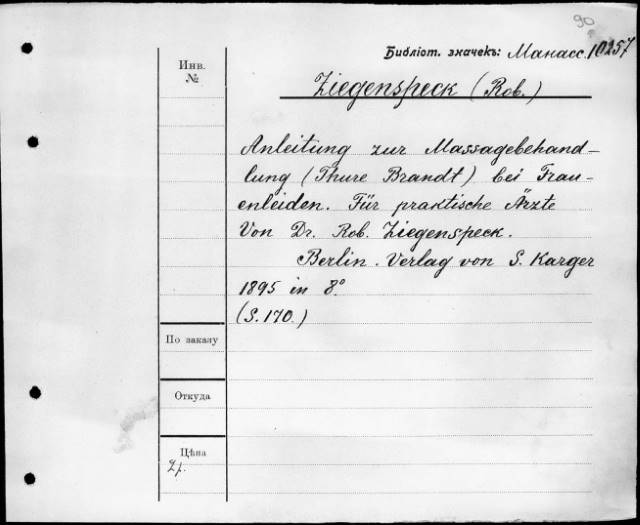 90
Библіот. значекъ: Манасс. 10257
Инв.
№
Ziegenspeck (Rob.)
Anleitung zur Massagebehand-
lung (Thure Brandt) bei Frau-
enleiden. Für praktische Ärzte
Von Dr. Rob. Ziegenspeck.
Berlin. Verlag von S. Karger
1895 in 8º
(S. 170.)
По заказу
Откуда
Цѣна